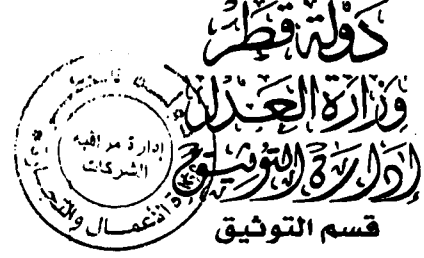 دولة قطر
وزارة العدل
إدارة التوثيق
قسم التوثيق
إدارة مراقبة
الشركات
الأعمال والتجارة